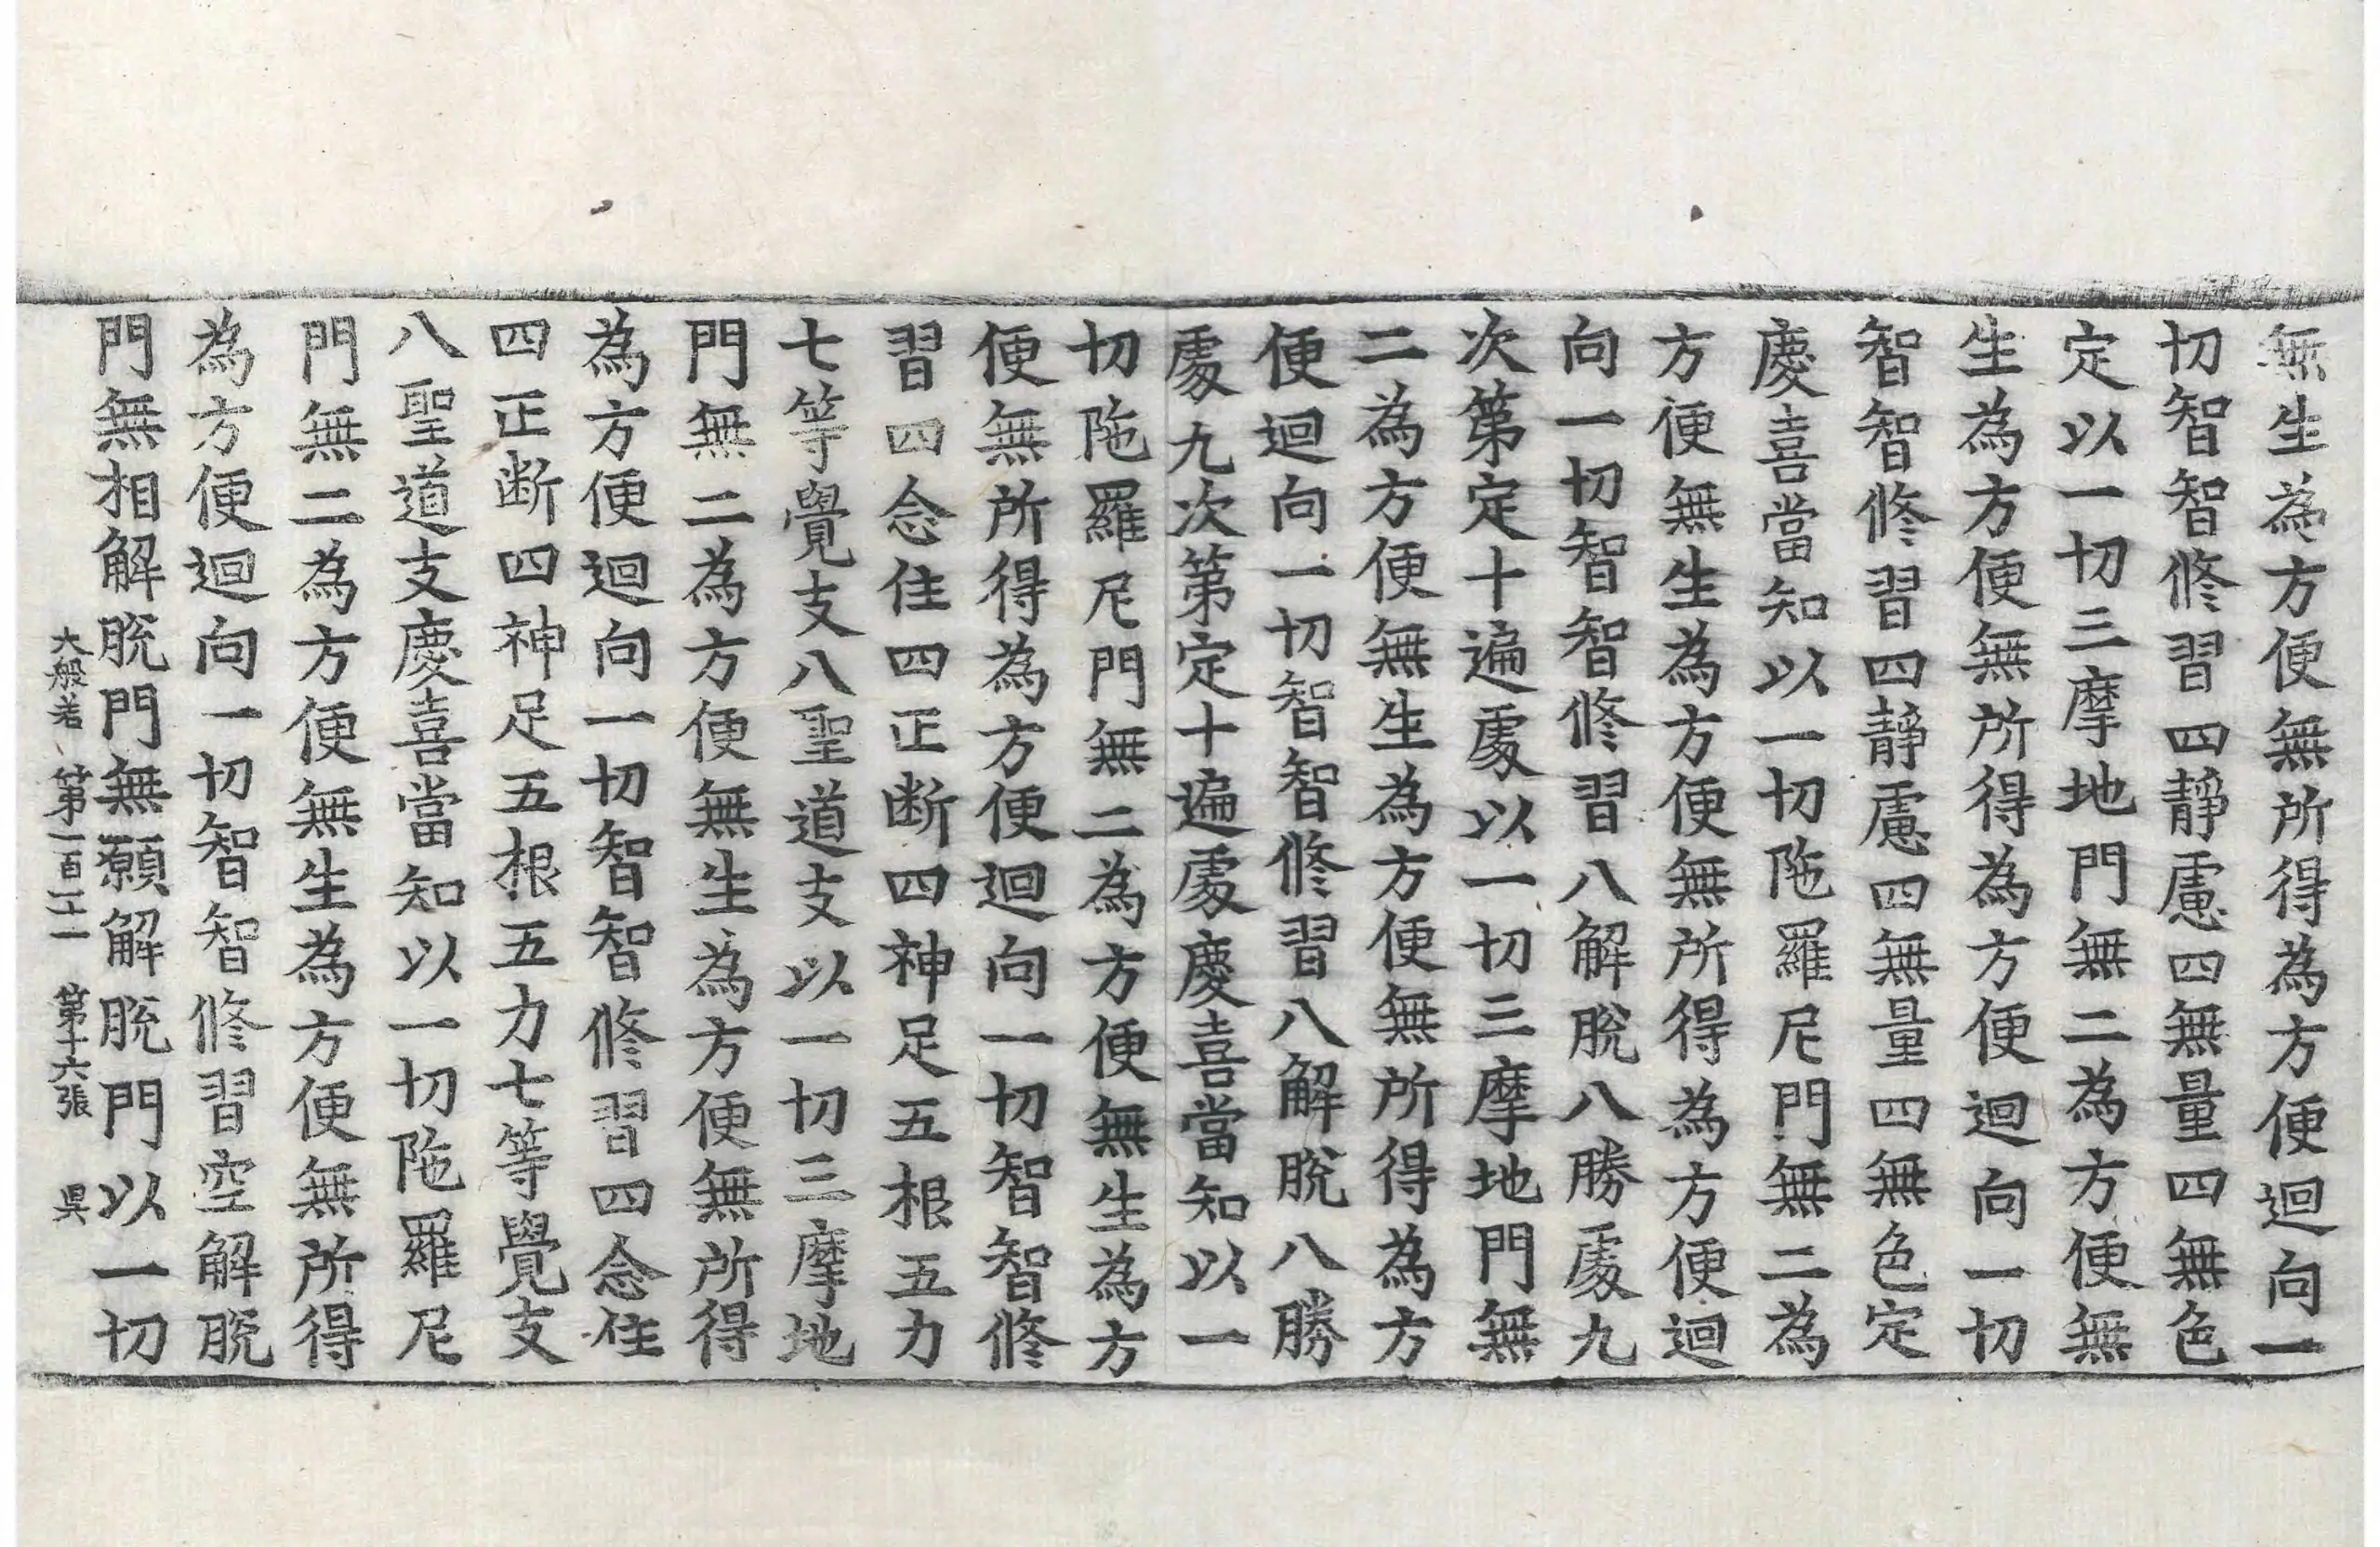 無生為方便無所得為方便迴向一
切智智修習四靜慮四無量四無色
定以一切三摩地門無二為方便無
生為方便無所得為方便迴向一切
智智修習四靜慮四無量四無色定
慶喜當知以一切陁羅尼門無二為
方便無生為方便無所得為方便迴
向一切智智修習八解脫八勝處九
次第定十遍處以一切三摩地門無
二為方便無生為方便無所得為方
便迴向一切智智修習八解脫八勝
處九次第定十遍處慶喜當知以一
切陁羅尼門無二為方便無生為方
便無所得為方便迴向一切智智修
習四念住四正断四神足五根五力
七等覺支八聖道支以一切三摩地
門無二為方便無生為方便無所得
為方便迴向一切智智修習四念住
四正断四神足五根五力七等覺支
八聖道支慶喜當知以一切陁羅尼
門無二為方便無生為方便無所得
為方便迴向一切智智修習空解脫
門無相解脫門無願解脫門以一切
大般若 第一百二十一 第十六張 昃